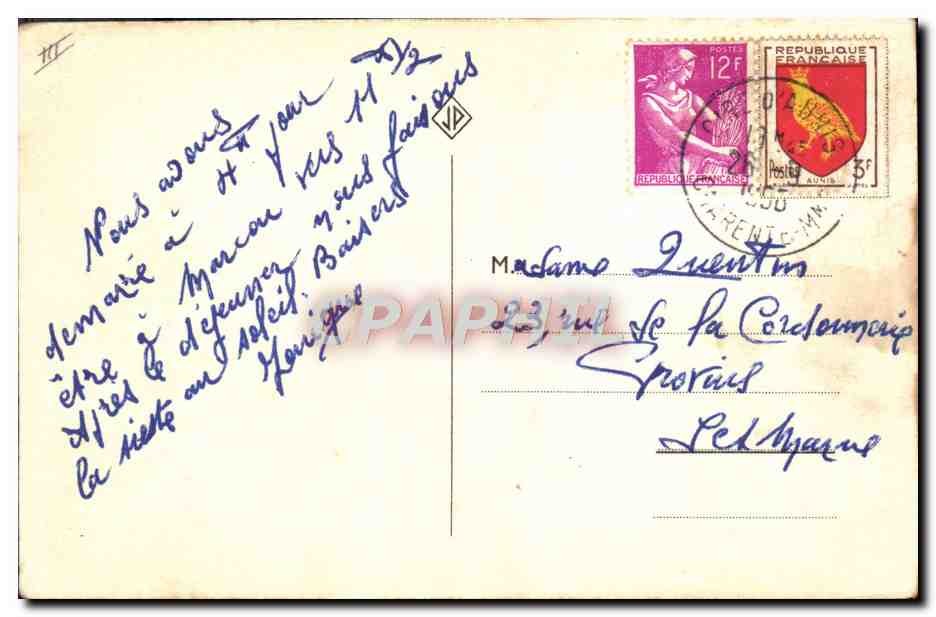 III
Nous avons
demarré à H jour
être à Marcou vers 11 H 1/2
Après le déjeuner nous faisons
la sieste au soleil. Baisers
Monique
VA
POSTES
12F
REPUBLIQUE FRANÇAISE
REPUBLIQUE
FRANÇAISE
Postes
3F
AUNIS
ST PIERRE D'OLERON
26 9
CHARENTE-MME
Madame Quentin
23, rue de la Cordonnerie
Provins
S et Marne
CPAPHIL